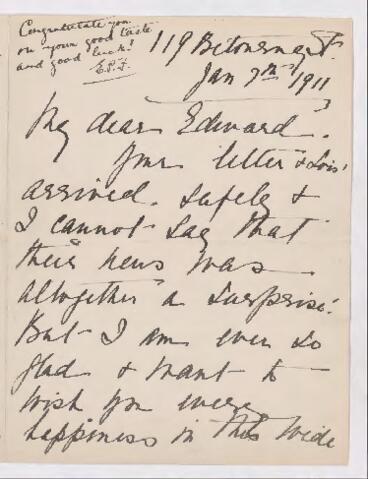 Congratulate you
on your good taste
and good luck!
E.P.F.
119 St.
Jan 7th 1911
My dear Edward.
Your letter & Lois'
arrived safely &
I cannot say that
their news was
altogether a surprise.
But I am ever so
glad & want to
wish you every
happiness in this wide